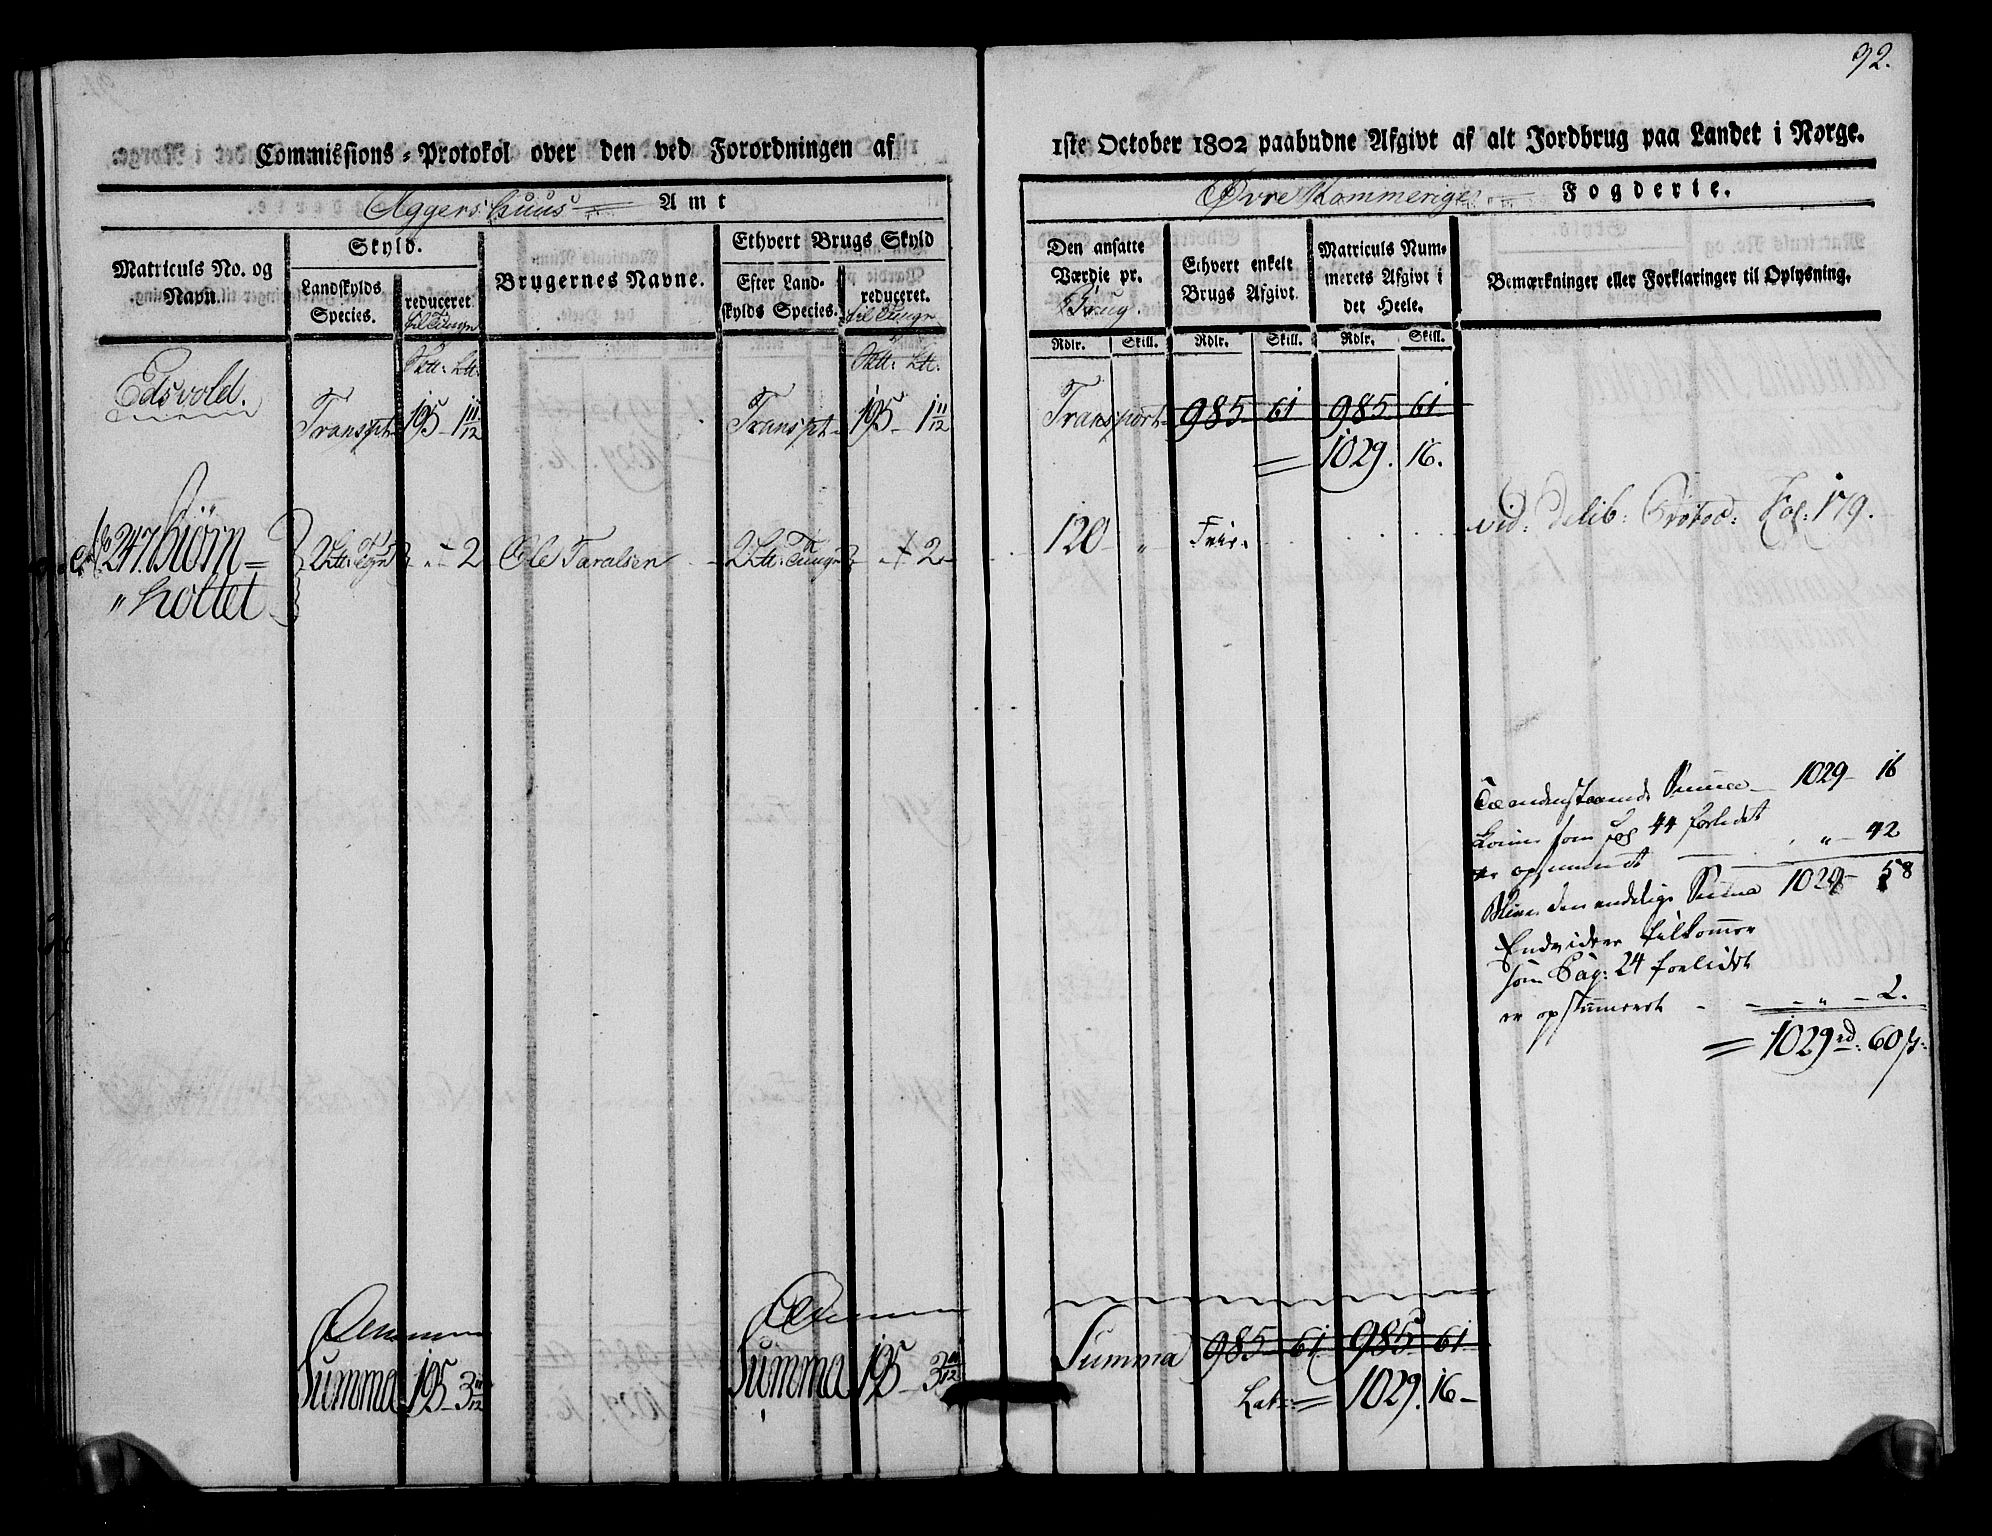 92.
Commissions-Protokol over den ved Forordningen af 1ste October 1802 paabudne Afgivt af alt Jordbrug paa Landet i Norge.
Aggershuus Amt
Øvre Rommerige Fogderie.
Matriculs No. og Navn.
Skyld.
Landskylds Species.
reduceret til Tunge
Brugernes Navne.
Ethvert Brugs Skyld
Efter Landskylds Species.
reduceret. til Tunge
Den ansatte Værdie pr. Brug.
Ethvert enkelt Brugs Afgivt.
Matriculs Nummerets Afgivt i det Heele.
Bemærkninger eller Forklaringer til Oplysning.
Rdlr. Skill. Rdlr. Skill. Rdlr. Skill.
Edsvold.
Transpt 195 - 1 11/12 Transpt 195 - 1 11/12 Transport 985 61 985 61
= 1029. 16.
No 247. Biørn=
" holtet
2 Ltt: Tge " - 2 Ole Taralsen 2 Ltt: Tunge " - 2 120 " Frie. vid: Delib: Protoc: Fol: 179.
Summa 1029 - 16
som pag 44 forledet
" - 42
Bliver den endelige Summa 1029 - 58
Endvidere tilkommer
som Pag: 24 forledet
er opsummeret - - " - 2.
= 1029 rd: 60 s:
Summa 195 - 3 11/12 Summa 195 - 3 11/12 Summa 985 61 985 61
Lat: = 1029. 16 -